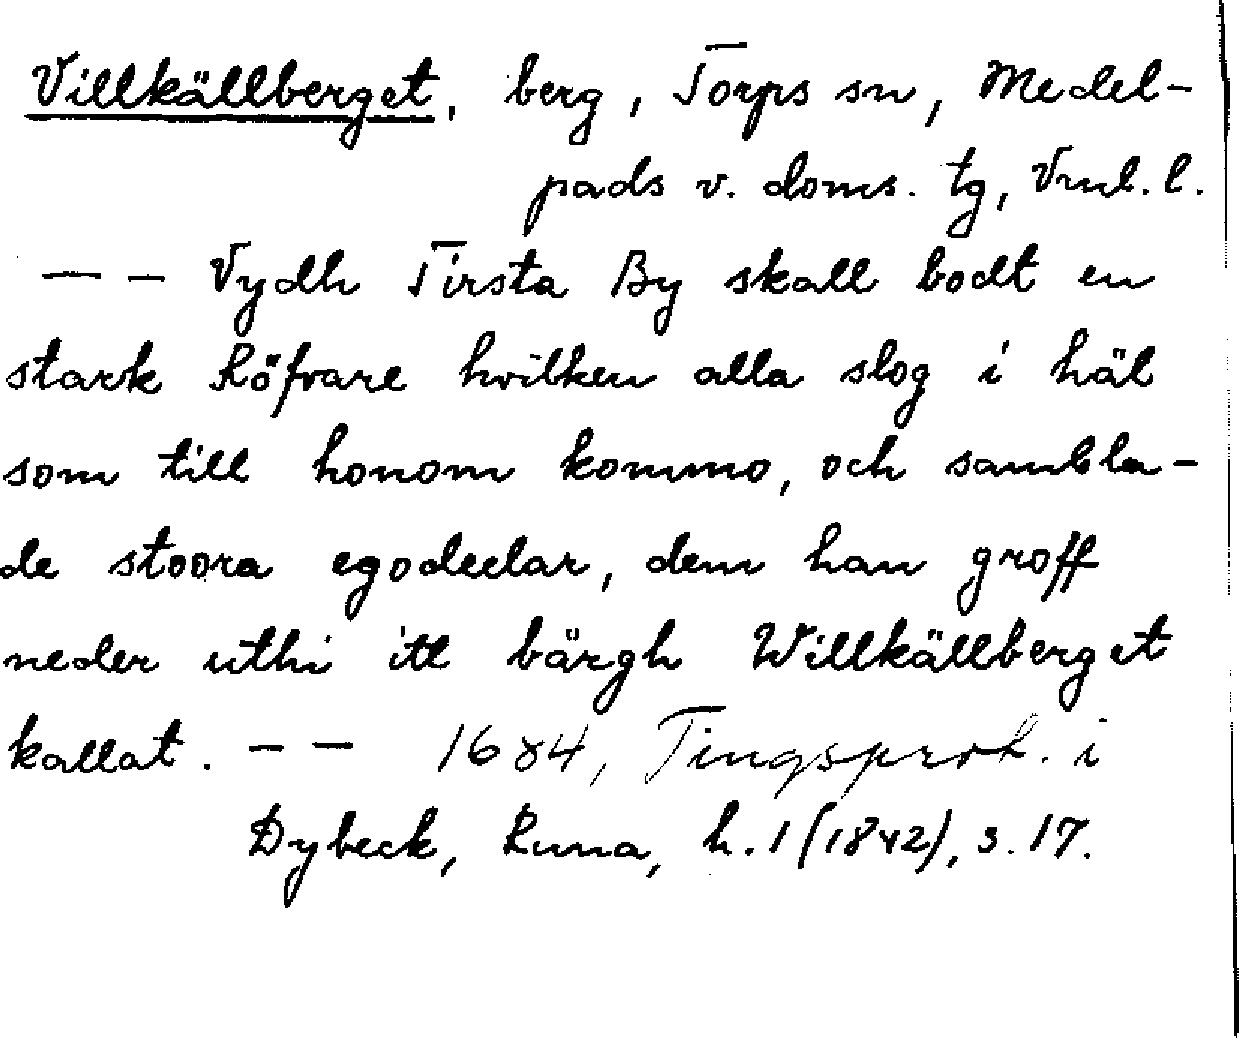 Villkällberget, berg, Torps sn, Medel-
pads v. doms. tg, Vnl. l.
— — Vydh Tirsta By skall bodt en
stark Röfvare hvilken alla slog i häl
som till honom kommo, och sambla-
de stoora egodeelar, dem han groff
neder uthi itt bärgh Willkällberget
kallat. — — 1684, Tingsprot. i
Dybeck, Runa, h. 1 (1842), s. 17.